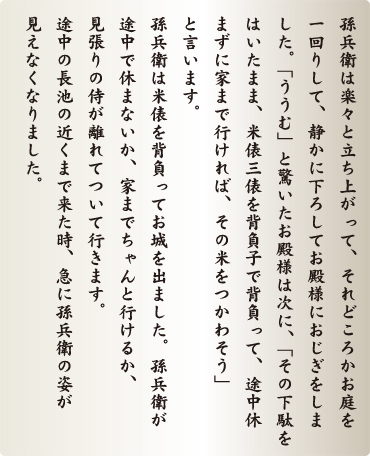 孫兵衛は楽々と立ち上がって、それどころかお庭を
一回りして、静かに下ろしてお殿様におじぎをしま
した。「ううむ」と驚いたお殿様は次に、「その下駄を
はいたまま、米俵三俵を背負子で背負って、途中休
まずに家まで行ければ、その米をつかわそう」
と言います。
孫兵衛は米俵を背負ってお城を出ました。孫兵衛が
途中で休まないか、家までちゃんと行けるか、
見張りの侍が離れてついて行きます。
途中の長池の近くまで来た時、急に孫兵衛の姿が
見えなくなりました。